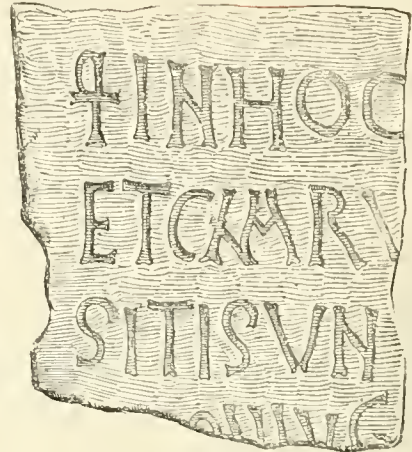 ⳨ INHOC
ETCAMR
SITISVN